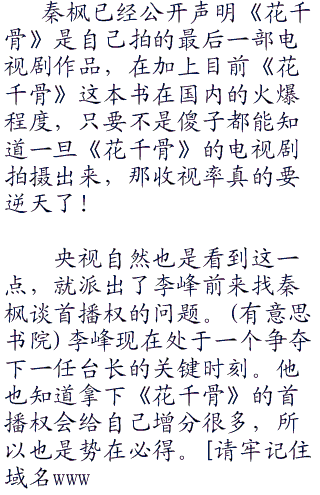 秦枫已经公开声明《花千
骨》是自己拍的最后一部电
视剧作品，在加上目前《花
千骨》这本书在国内的火爆
程度，只要不是傻子都能知
道一旦《花千骨》的电视剧
拍摄出来，那收视率真的要
逆天了！
央视自然也是看到这一
点，就派出了李峰前来找秦
枫谈首播权的问题。(有意思
书院)李峰现在处于一个争夺
下一任台长的关键时刻。他
也知道拿下《花千骨》的首
播权会给自己增分很多，所
以也是势在必得。[请牢记住
域名www